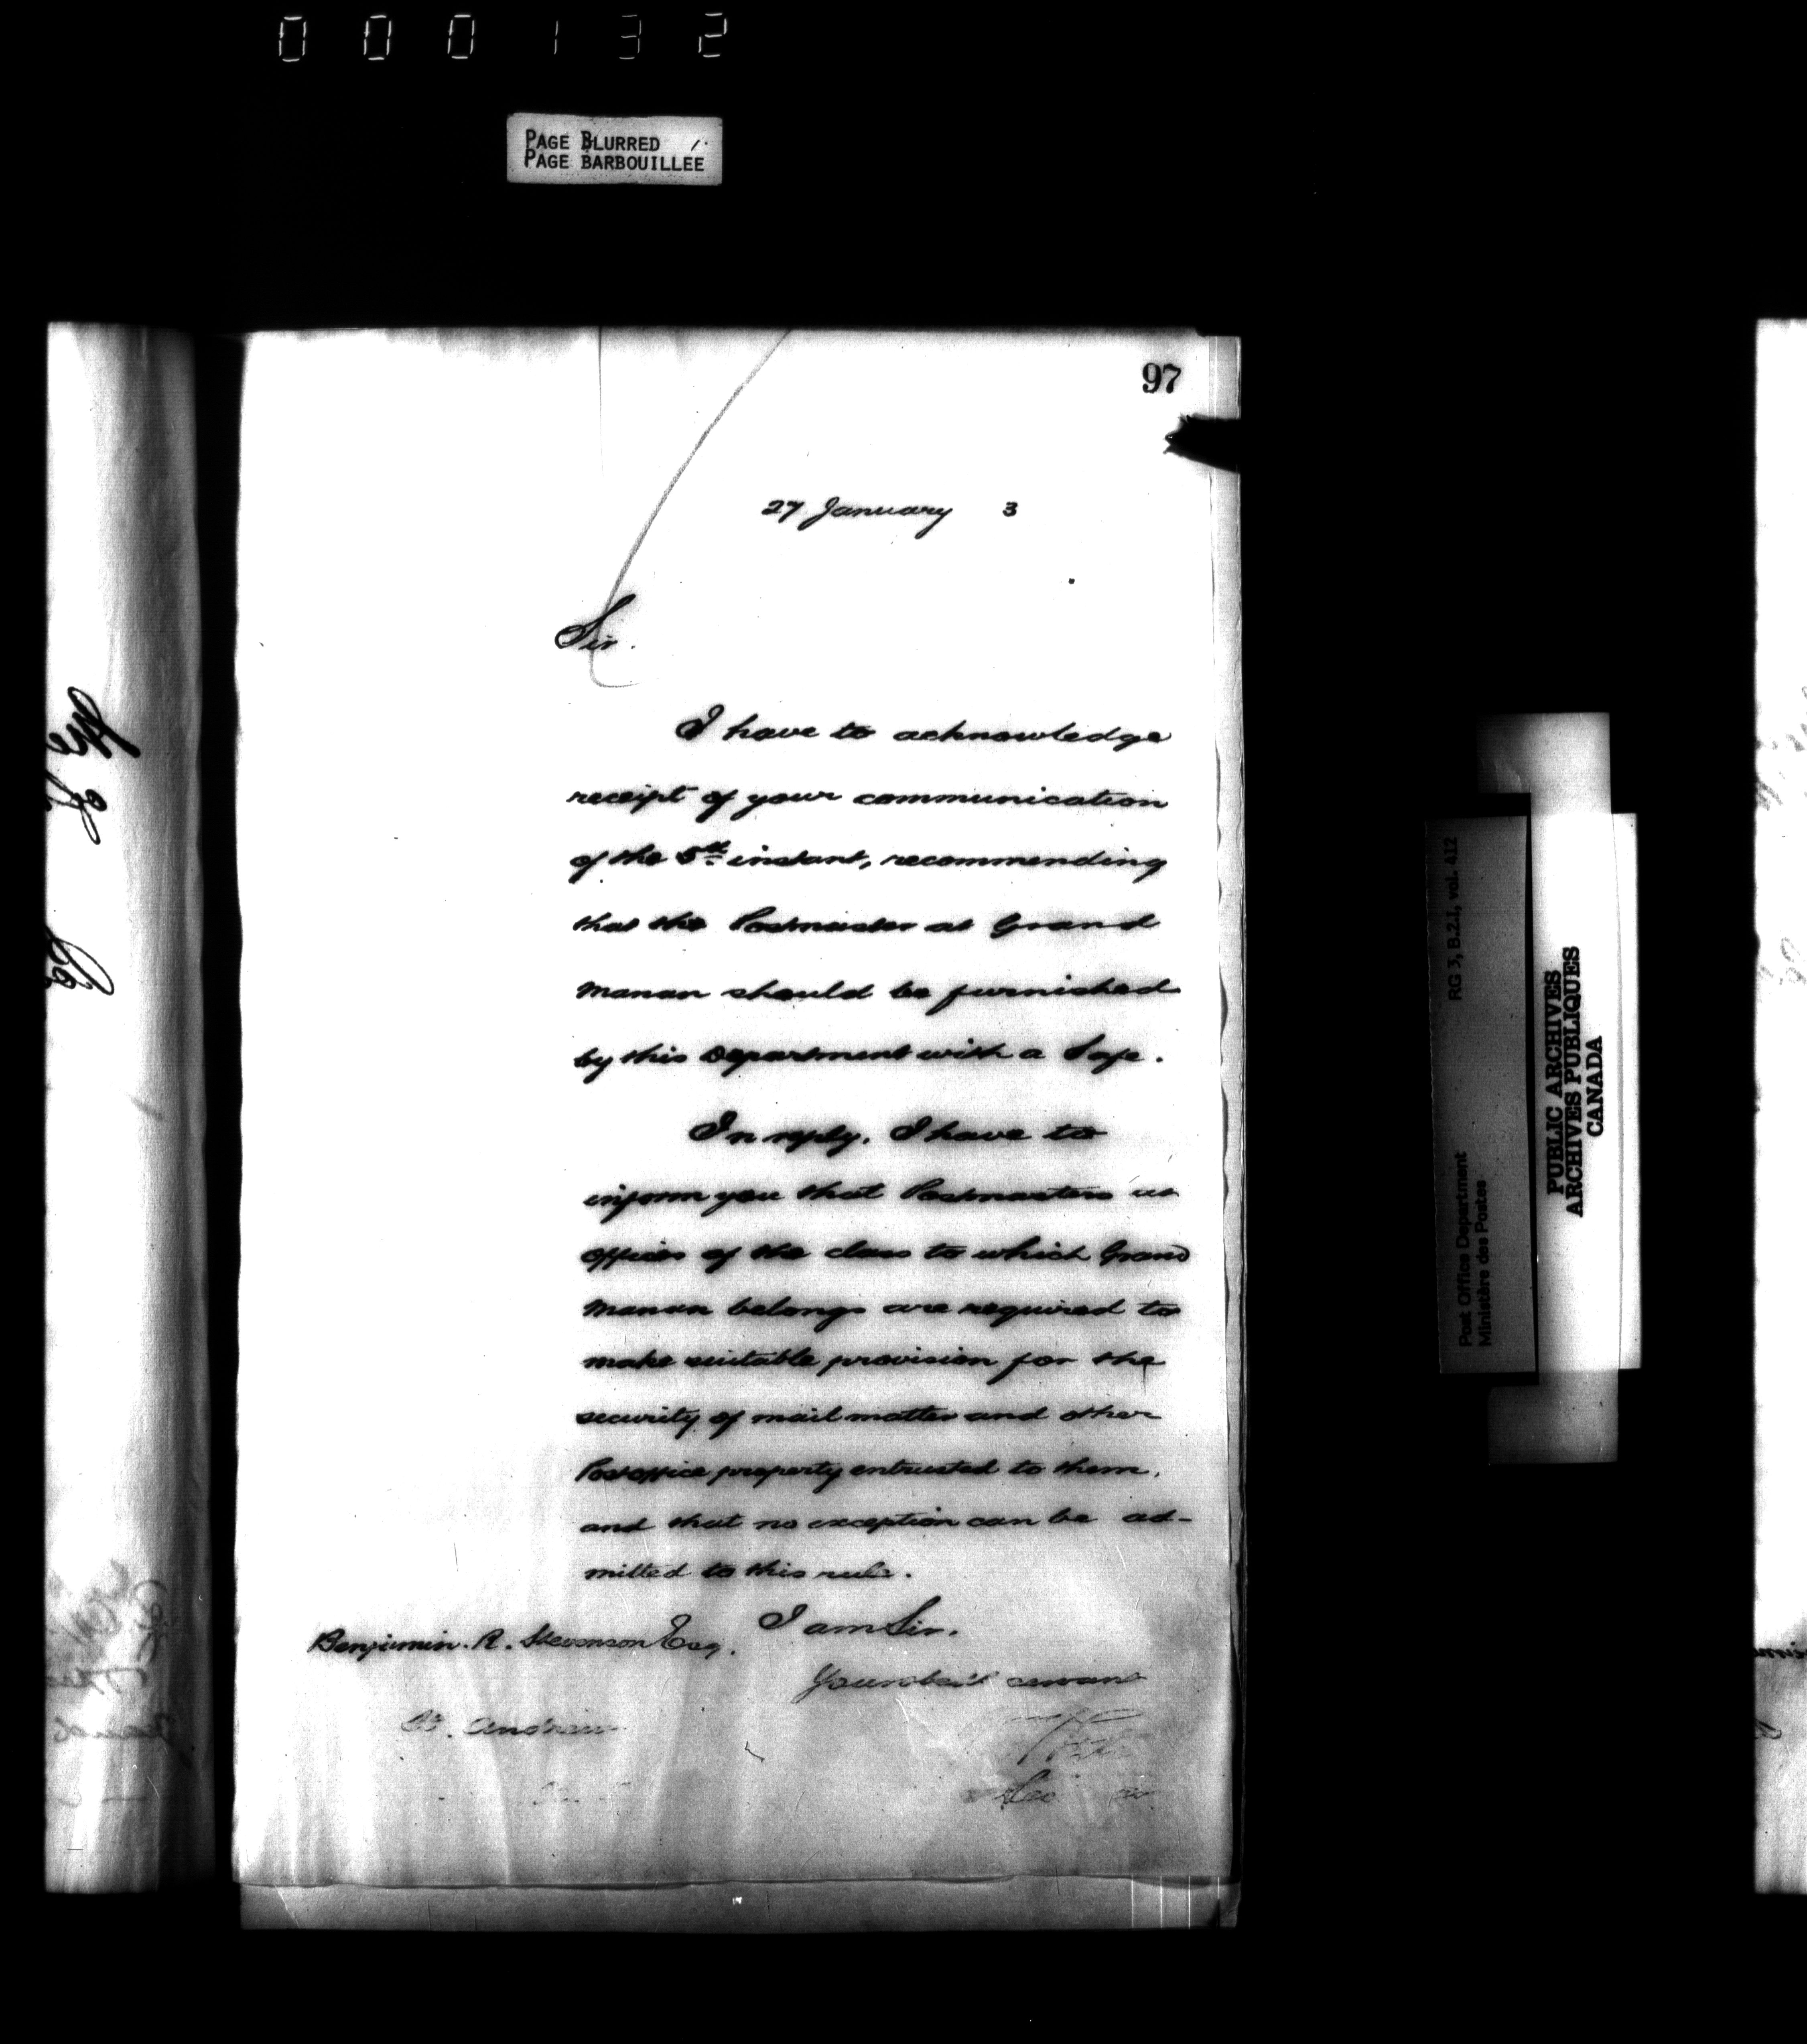 000132
PAGE BLURRED
PAGE BARBOUILLEE
97
27 January 3
Sir.
I have to acknowledge
receipt of your communication
of the 5th instant, recommending
that the Postmaster at Grand
Manan should be furnished
by this Department with a Safe.
In reply, I have to
inform you that Postmasters at
offices of the class to which Grand
Manan belongs are required to
make suitable provision for the
security of mail matter and other
Postoffice property entrusted to them,
and that no exception can be ad-
mitted to this rule.
I am Sir.
Benjamin. R. Stevenson Esq.
Your obed't servant
St. Andrews
RG 3, B.2.1, vol. 412
Post Office Department
Ministère des Postes
PUBLIC ARCHIVES
ARCHIVES PUBLIQUES
CANADA